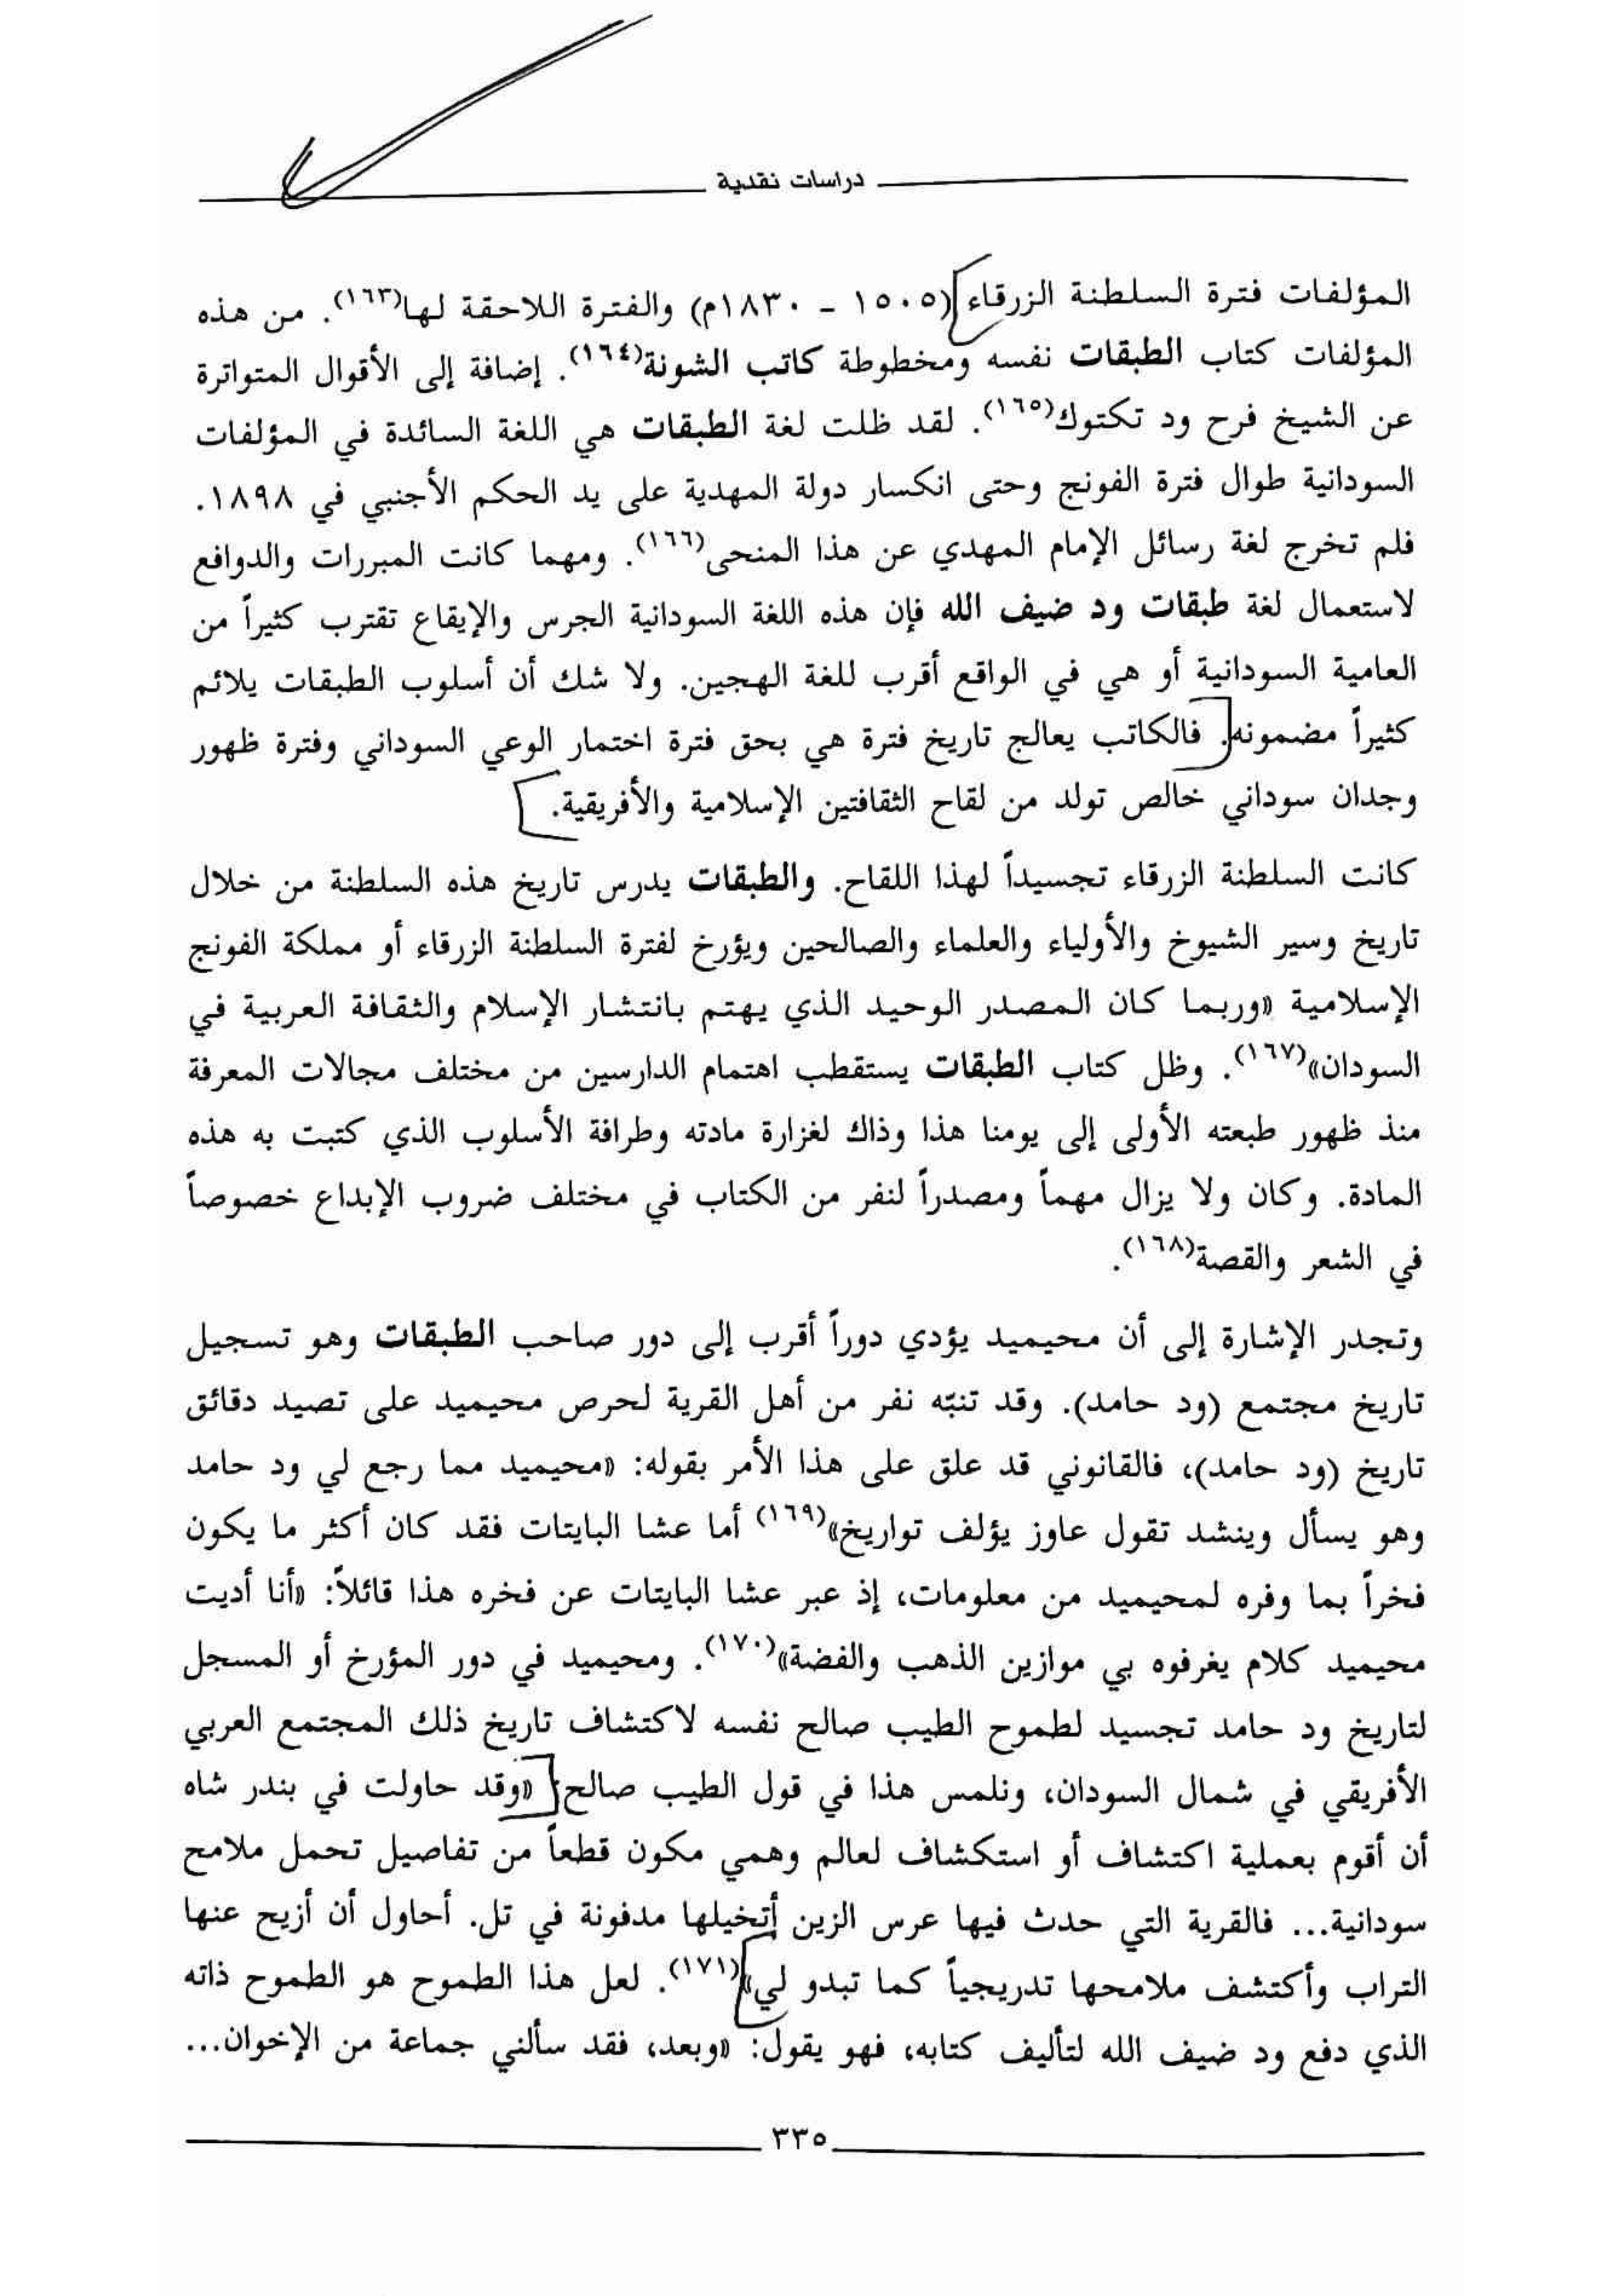 دراسات نقدية
المؤلفات فترة السلطنة الزرقاء (١٥٠٥ - ١٨٣٠م) والفترة اللاحقة لها(١٦٣). من هذه
المؤلفات كتاب الطبقات نفسه ومخطوطة كاتب الشونة(١٦٤). إضافة إلى الأقوال المتواترة
عن الشيخ فرح ود تكتوك(١٦٥). لقد ظلت لغة الطبقات هي اللغة السائدة في المؤلفات
السودانية طوال فترة الفونج وحتى انكسار دولة المهدية على يد الحكم الأجنبي في ١٨٩٨.
فلم تخرج لغة رسائل الإمام المهدي عن هذا المنحى(١٦٦). ومهما كانت المبررات والدوافع
لاستعمال لغة طبقات ود ضيف الله فإن هذه اللغة السودانية الجرس والإيقاع تقترب كثيراً من
العامية السودانية أو هي في الواقع أقرب للغة الهجين. ولا شك أن أسلوب الطبقات يلائم
كثيراً مضمونه. فالكاتب يعالج تاريخ فترة هي بحق فترة اختمار الوعي السوداني وفترة ظهور
وجدان سوداني خالص تولد من لقاح الثقافتين الإسلامية والأفريقية.
كانت السلطنة الزرقاء تجسيداً لهذا اللقاح. والطبقات يدرس تاريخ هذه السلطنة من خلال
تاريخ وسير الشيوخ والأولياء والعلماء والصالحين ويؤرخ لفترة السلطنة الزرقاء أو مملكة الفونج
الإسلامية «وربما كان المصدر الوحيد الذي يهتم بانتشار الإسلام والثقافة العربية في
السودان»(١٦٧). وظل كتاب الطبقات يستقطب اهتمام الدارسين من مختلف مجالات المعرفة
منذ ظهور طبعته الأولى إلى يومنا هذا وذاك لغزارة مادته وطرافة الأسلوب الذي كتبت به هذه
المادة. وكان ولا يزال مهماً ومصدراً لنفر من الكتاب في مختلف ضروب الإبداع خصوصاً
في الشعر والقصة(١٦٨).
وتجدر الإشارة إلى أن محيميد يؤدي دوراً أقرب إلى دور صاحب الطبقات وهو تسجيل
تاريخ مجتمع (ود حامد). وقد تنبّه نفر من أهل القرية لحرص محيميد على تصيد دقائق
تاريخ (ود حامد)، فالقانوني قد علق على هذا الأمر بقوله: «محيميد مما رجع لي ود حامد
وهو يسأل وينشد تقول عاوز يؤلف تواريخ»(١٦٩) أما عشا البايتات فقد كان أكثر ما يكون
فخراً بما وفره لمحيميد من معلومات، إذ عبر عشا البايتات عن فخره هذا قائلاً: «أنا أديت
محيميد كلام يغرفوه بي موازين الذهب والفضة»(١٧٠). ومحيميد في دور المؤرخ أو المسجل
لتاريخ ود حامد تجسيد لطموح الطيب صالح نفسه لاكتشاف تاريخ ذلك المجتمع العربي
الأفريقي في شمال السودان، ونلمس هذا في قول الطيب صالح: «وقد حاولت في بندر شاه
أن أقوم بعملية اكتشاف أو استكشاف لعالم وهمي مكون قطعاً من تفاصيل تحمل ملامح
سودانية... فالقرية التي حدث فيها عرس الزين أتخيلها مدفونة في تل. أحاول أن أزيح عنها
التراب وأكتشف ملامحها تدريجياً كما تبدو لي»(١٧١). لعل هذا الطموح هو الطموح ذاته
الذي دفع ود ضيف الله لتأليف كتابه، فهو يقول: «وبعد، فقد سألني جماعة من الإخوان...
٣٣٥